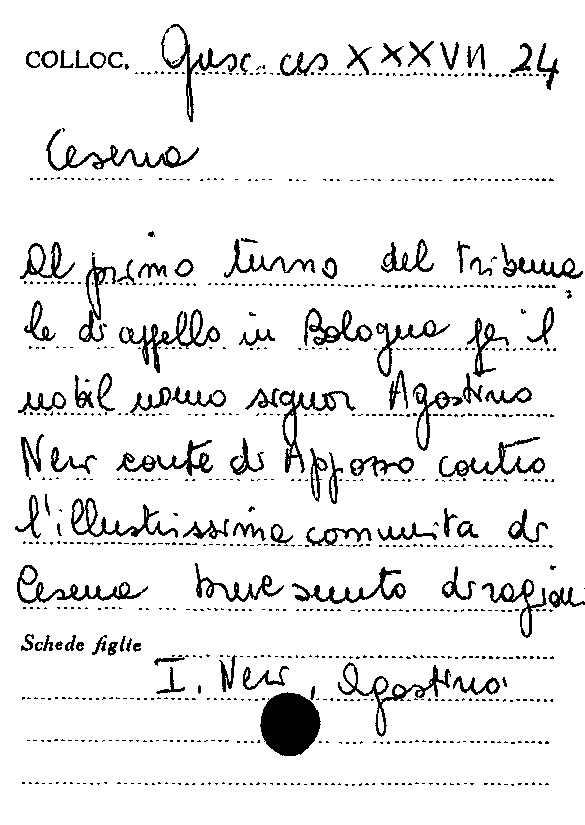 COLLOC. Gusc. ces XXXVII 24
Cesena
Al primo turno del tribuna
le di appello in Bologna per il
nobil uomo signor Agostino
Neri conte di Apposo contro
l'illustrissima comunita di
Cesena breve sunto di ragion
Schede figlie
I. Neri, Agostino